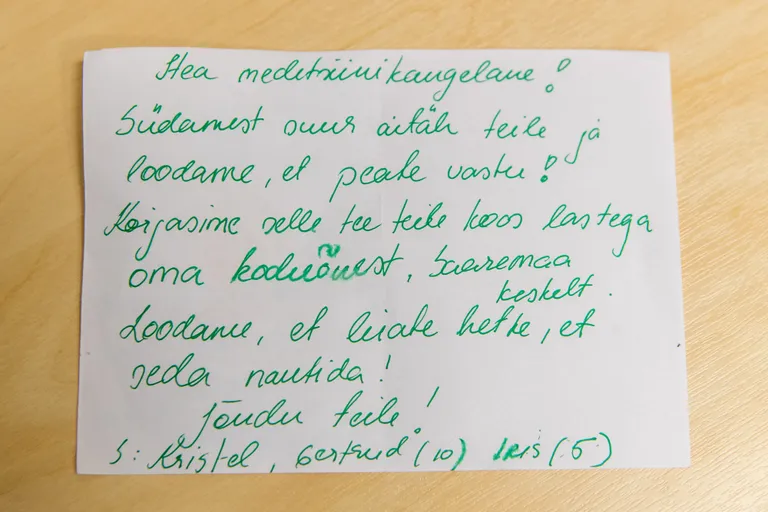 Hea meditsiinikangelane!
Südamest suur aitäh teile ja
loodame, et peate vastu!
Korjasime selle tee teile koos lastega
oma koduõuest, Saaremaa
keskelt.
Loodame, et leiate hetke, et
seda nautida!
Jõudu teile!
S: Kristel, Gertrud (10) Iris (5)